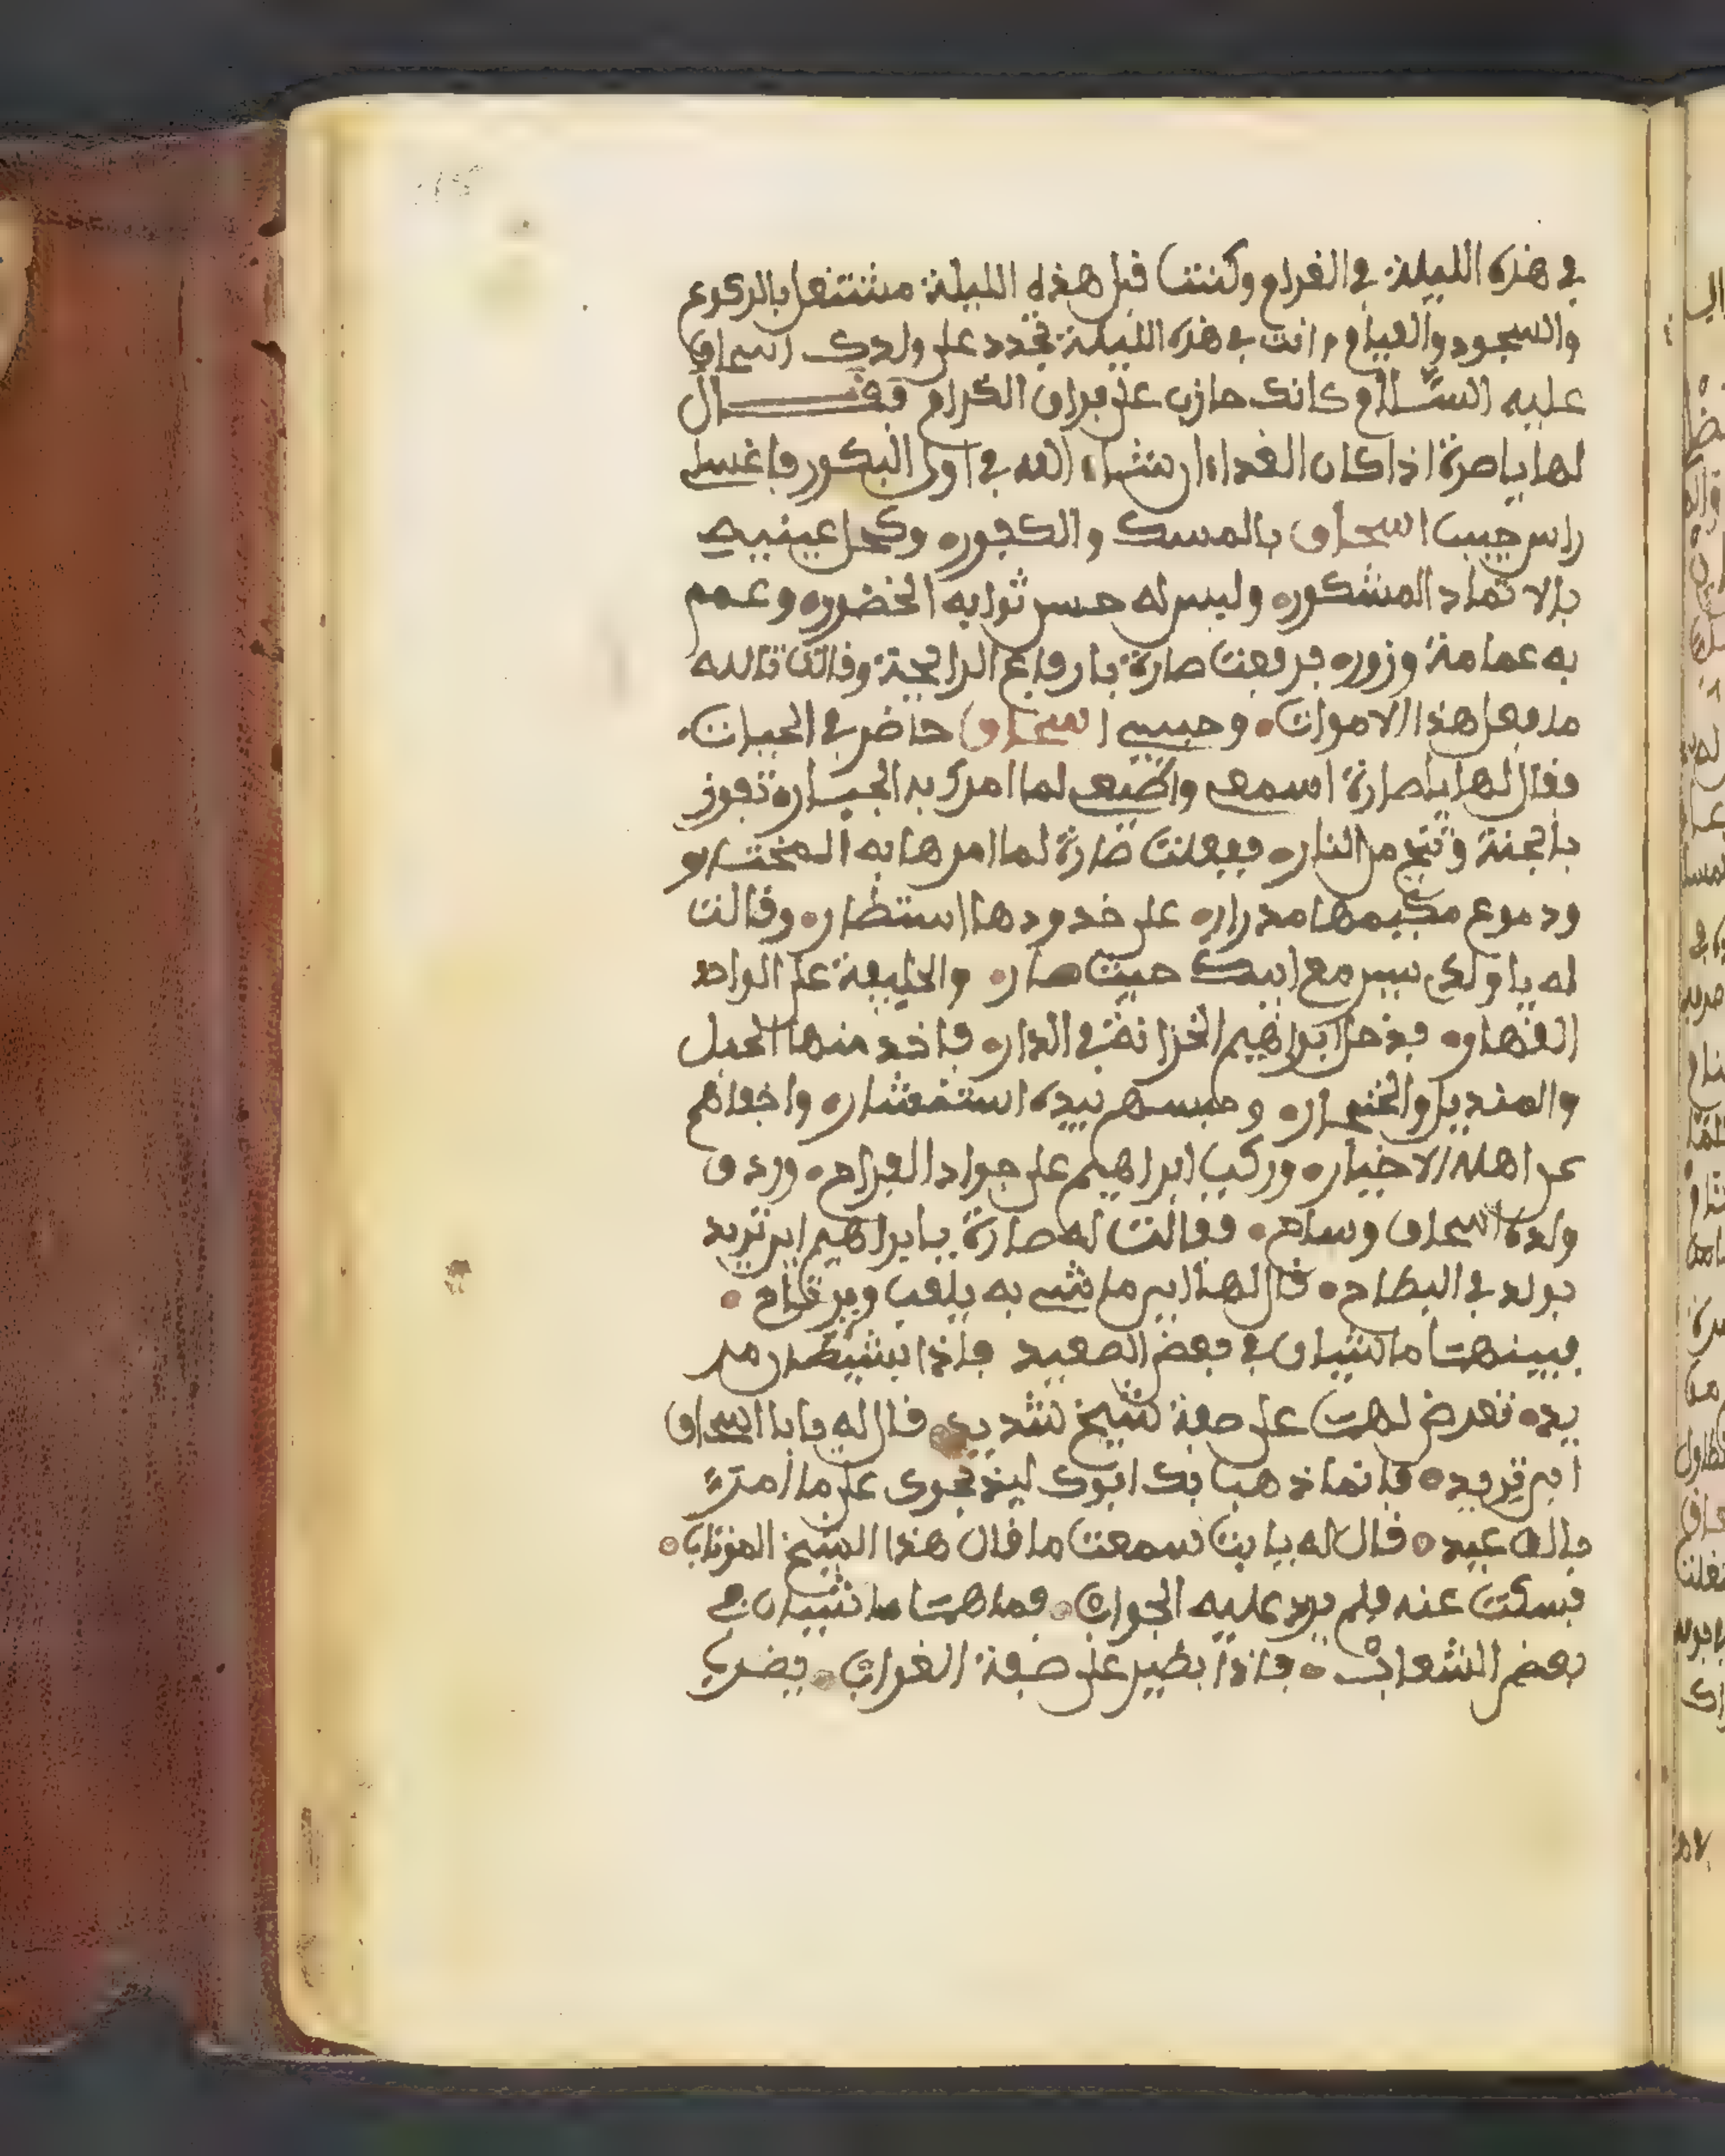 في هذه الليلة في الغرام وكنت قبل هذه الليلة مشتغل بالركوع
والسجود والقيام وانت في هذه الليلة تجدد على ولدك اسحاق
عليه السلام كانك حازن على فراق الكرام فقال
لها يا صرة اذا كان الغداء ان شاء الله في اول البكور فاغسل
راس حبيب اسحاق بالمسك والكفوره وكحل عينيه
بالاثماد المشكوره ولبس له حسن ثوابه الخضوره وعمم
به عمامة وزوره فرفعت صارة بارفاع الرايحة وقالت تالله
ما يفعل هذا الاموات وحبيبي اسحاق حاضر في الحيات
فقال لها يا صارة اسمعي واطيعي لما امرك به الجبار تفوز
بالجنة وتنج من النار ففعلت صارة لما امرها به المختار
ودموع مدراره على خدودها استطار وقالت
له يا ولدي سير مع ابيك حيث صار والخليفة على الواحد
القهار فدخل ابراهيم الخزانة في الدار فاخد منها الحبل
والمنديل والخنجار وحبسهم بيده واخفاهم
عن اهله الاخيار وركب ابراهيم على جواد القراح وردف
ولده اسحاق وساح فقالت له صارة يابراهيم اين تريد
بولد في البطاح قال لها اين ما شي به يلعب ويرتاح
فبينهما ماشيان في بعض الصعيد فاذا بشيطان مر
يد تعرض لهما على صفة شيخ شديد قال له يا با اسحاق
اين تريد فانما ذهب بك ابوك على ما امر
مالك عبيد قال له يا بت سمعت ما قال هذا الشيخ المرتاب
فسكت عنه فلم يرد عليه الجواب فما هما ماشيان في
بعض الشعاب فاذا بطير على صفة الغراب يضرب